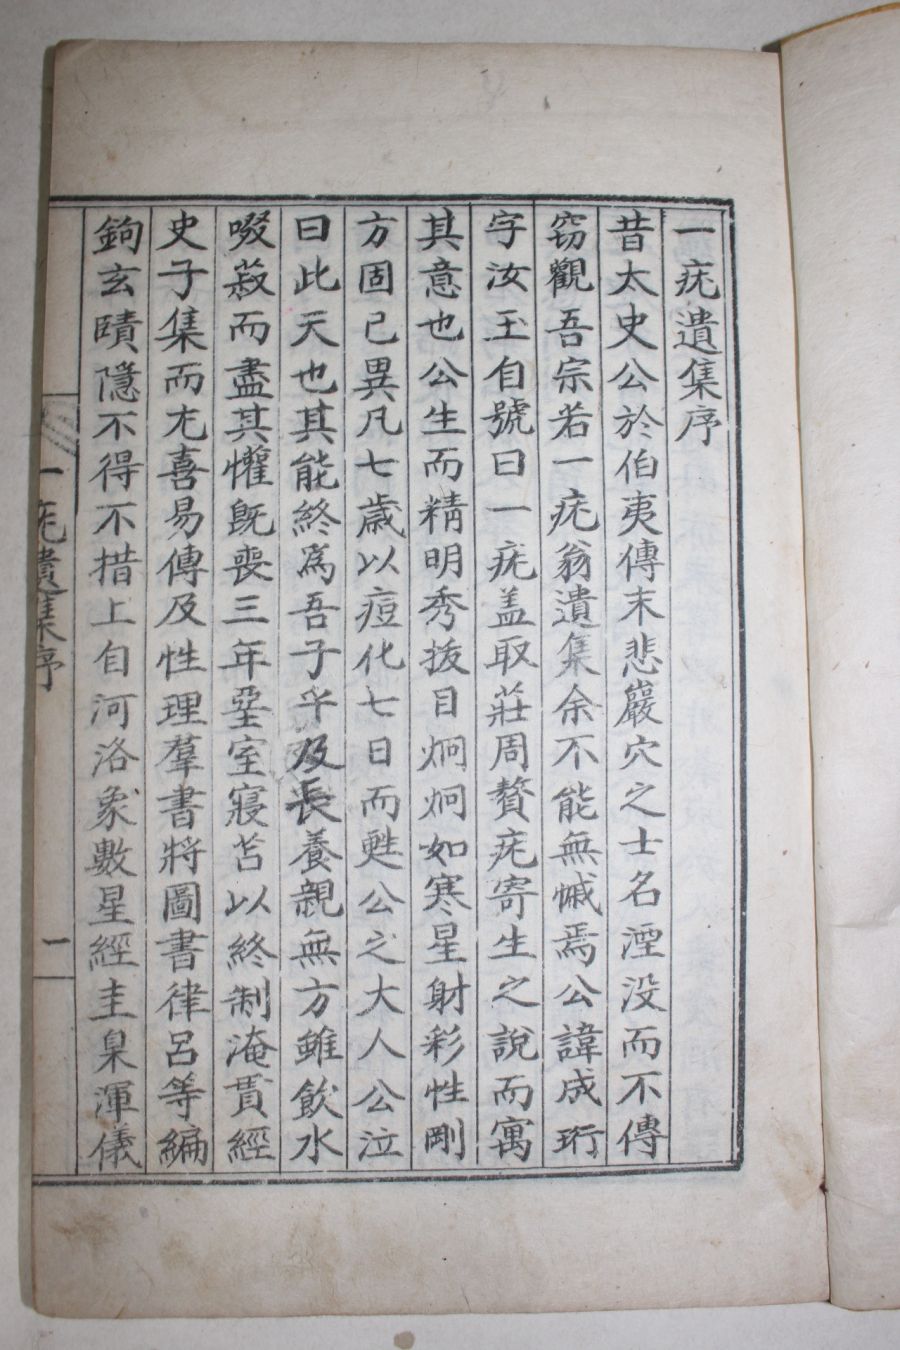 一疣遺集序
昔太史公於伯夷傳末悲巖穴之士名湮没而不傳
窃觀吾宗若一疣翁遺集余不能無慽焉公諱成珩
字汝玉自號曰一疣盖取莊周贅疣寄生之說而寓
其意也公生而精明秀拔目炯炯如寒星射彩性剛
方固已異凡七歲以痘化七日而甦公之大人公泣
曰此天也其能終爲吾子乎及長養親無方雖飮水
啜菽而盡其懽旣喪三年堊室寢苫以終制淹貫經
史子集而尢喜易傳及性理羣書將圖書律呂等編
鉤玄賾隱不得不措上自河洛象數星經圭臬渾儀
一疣遺集序
一